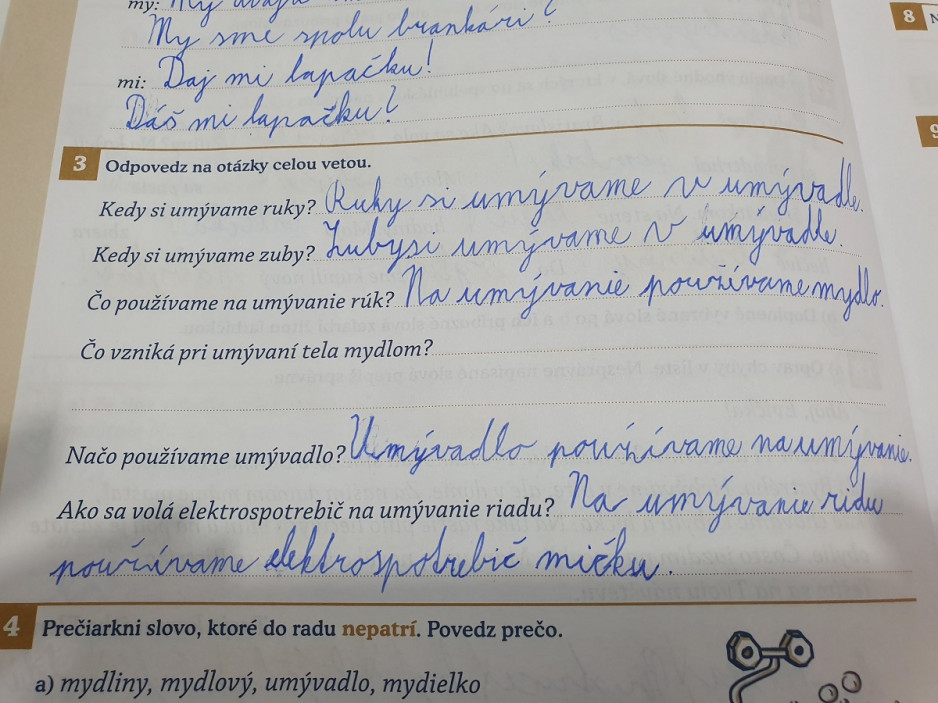 my: My
My sme spolu brankári?
mi: Daj mi lapačku!
Dáš mi lapačku?
3 Odpovedz na otázky celou vetou.
Kedy si umývame ruky? Ruky si umývame v umývadle.
Kedy si umývame zuby? Zuby si umývame v umývadle.
Čo používame na umývanie rúk? Na umývanie používame mydlo.
Čo vzniká pri umývaní tela mydlom?
Načo používame umývadlo? Umývadlo používame na umývanie.
Ako sa volá elektrospotrebič na umývanie riadu? Na umývanie ridu
používame elektrospotrebič mičku.
4 Prečiarkni slovo, ktoré do radu nepatrí. Povedz prečo.
a) mydliny, mydlový, umývadlo, mydielko
8
9